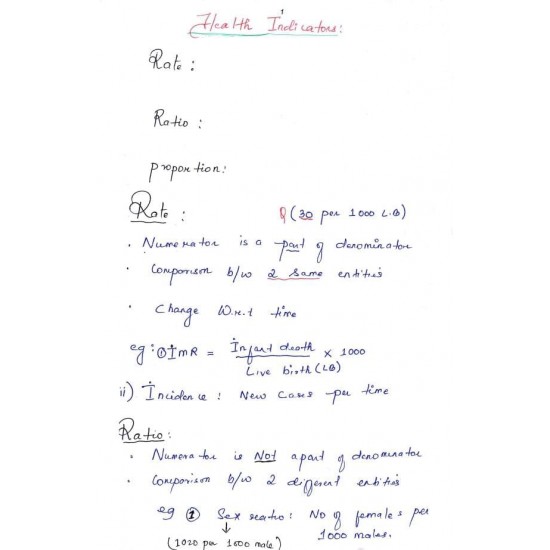 Health Indicators:
Rate :
Ratio :
proportion:
Rate : (30 per 1000 L.B)
• Numerator is a part of denominator
• Comparison b/w 2 same entities
• Change W.r.t time
eg : ① IMR = Infant death / Live birth (LB) × 1000
ii) Incidence : New Cases per time
Ratio:
• Numerator is Not a part of denominator
• Comparison b/w 2 different entities
eg ① Sex ratio : No of females per 1000 males.
↓
(1020 per 1000 male)